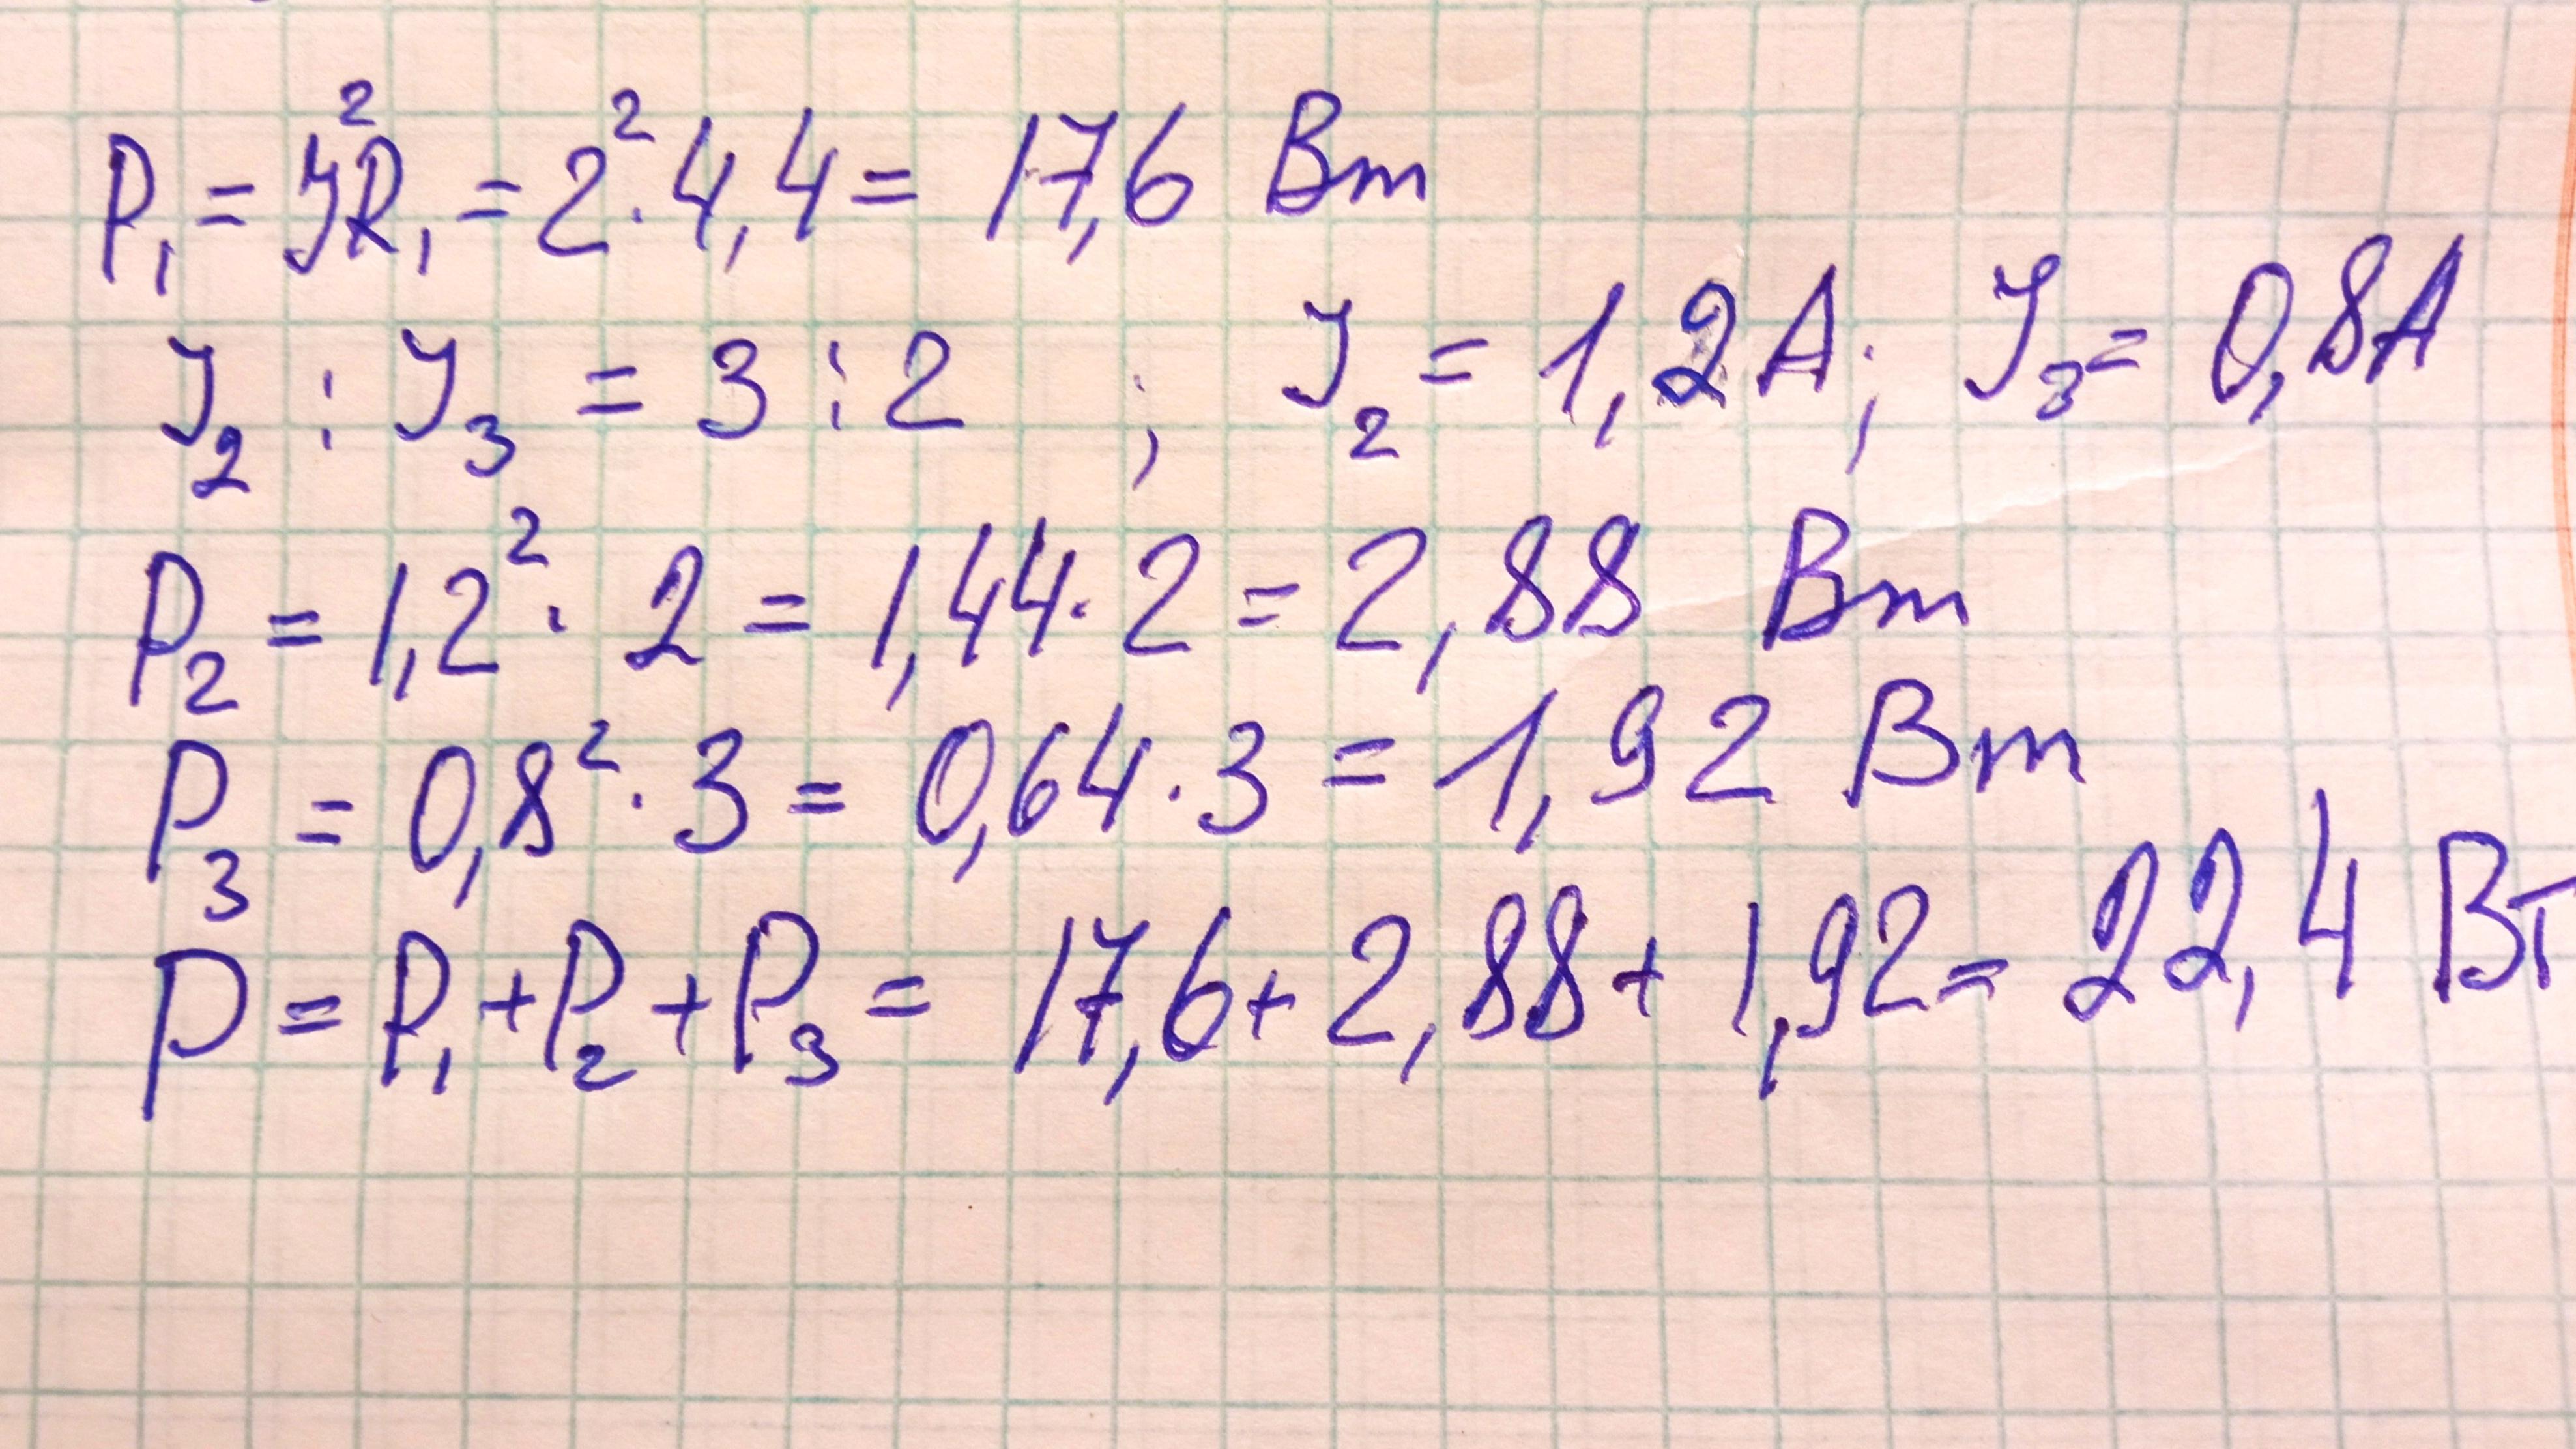 P₁ = J²R₁ = 2² · 4,4 = 17,6 Вт
J₂ : J₃ = 3 : 2 ; J₂ = 1,2A; J₃ = 0,8A
P₂ = 1,2² · 2 = 1,44 · 2 = 2,88 Вт
P₃ = 0,8² · 3 = 0,64 · 3 = 1,92 Вт
P = P₁ + P₂ + P₃ = 17,6 + 2,88 + 1,92 = 22,4 Вт